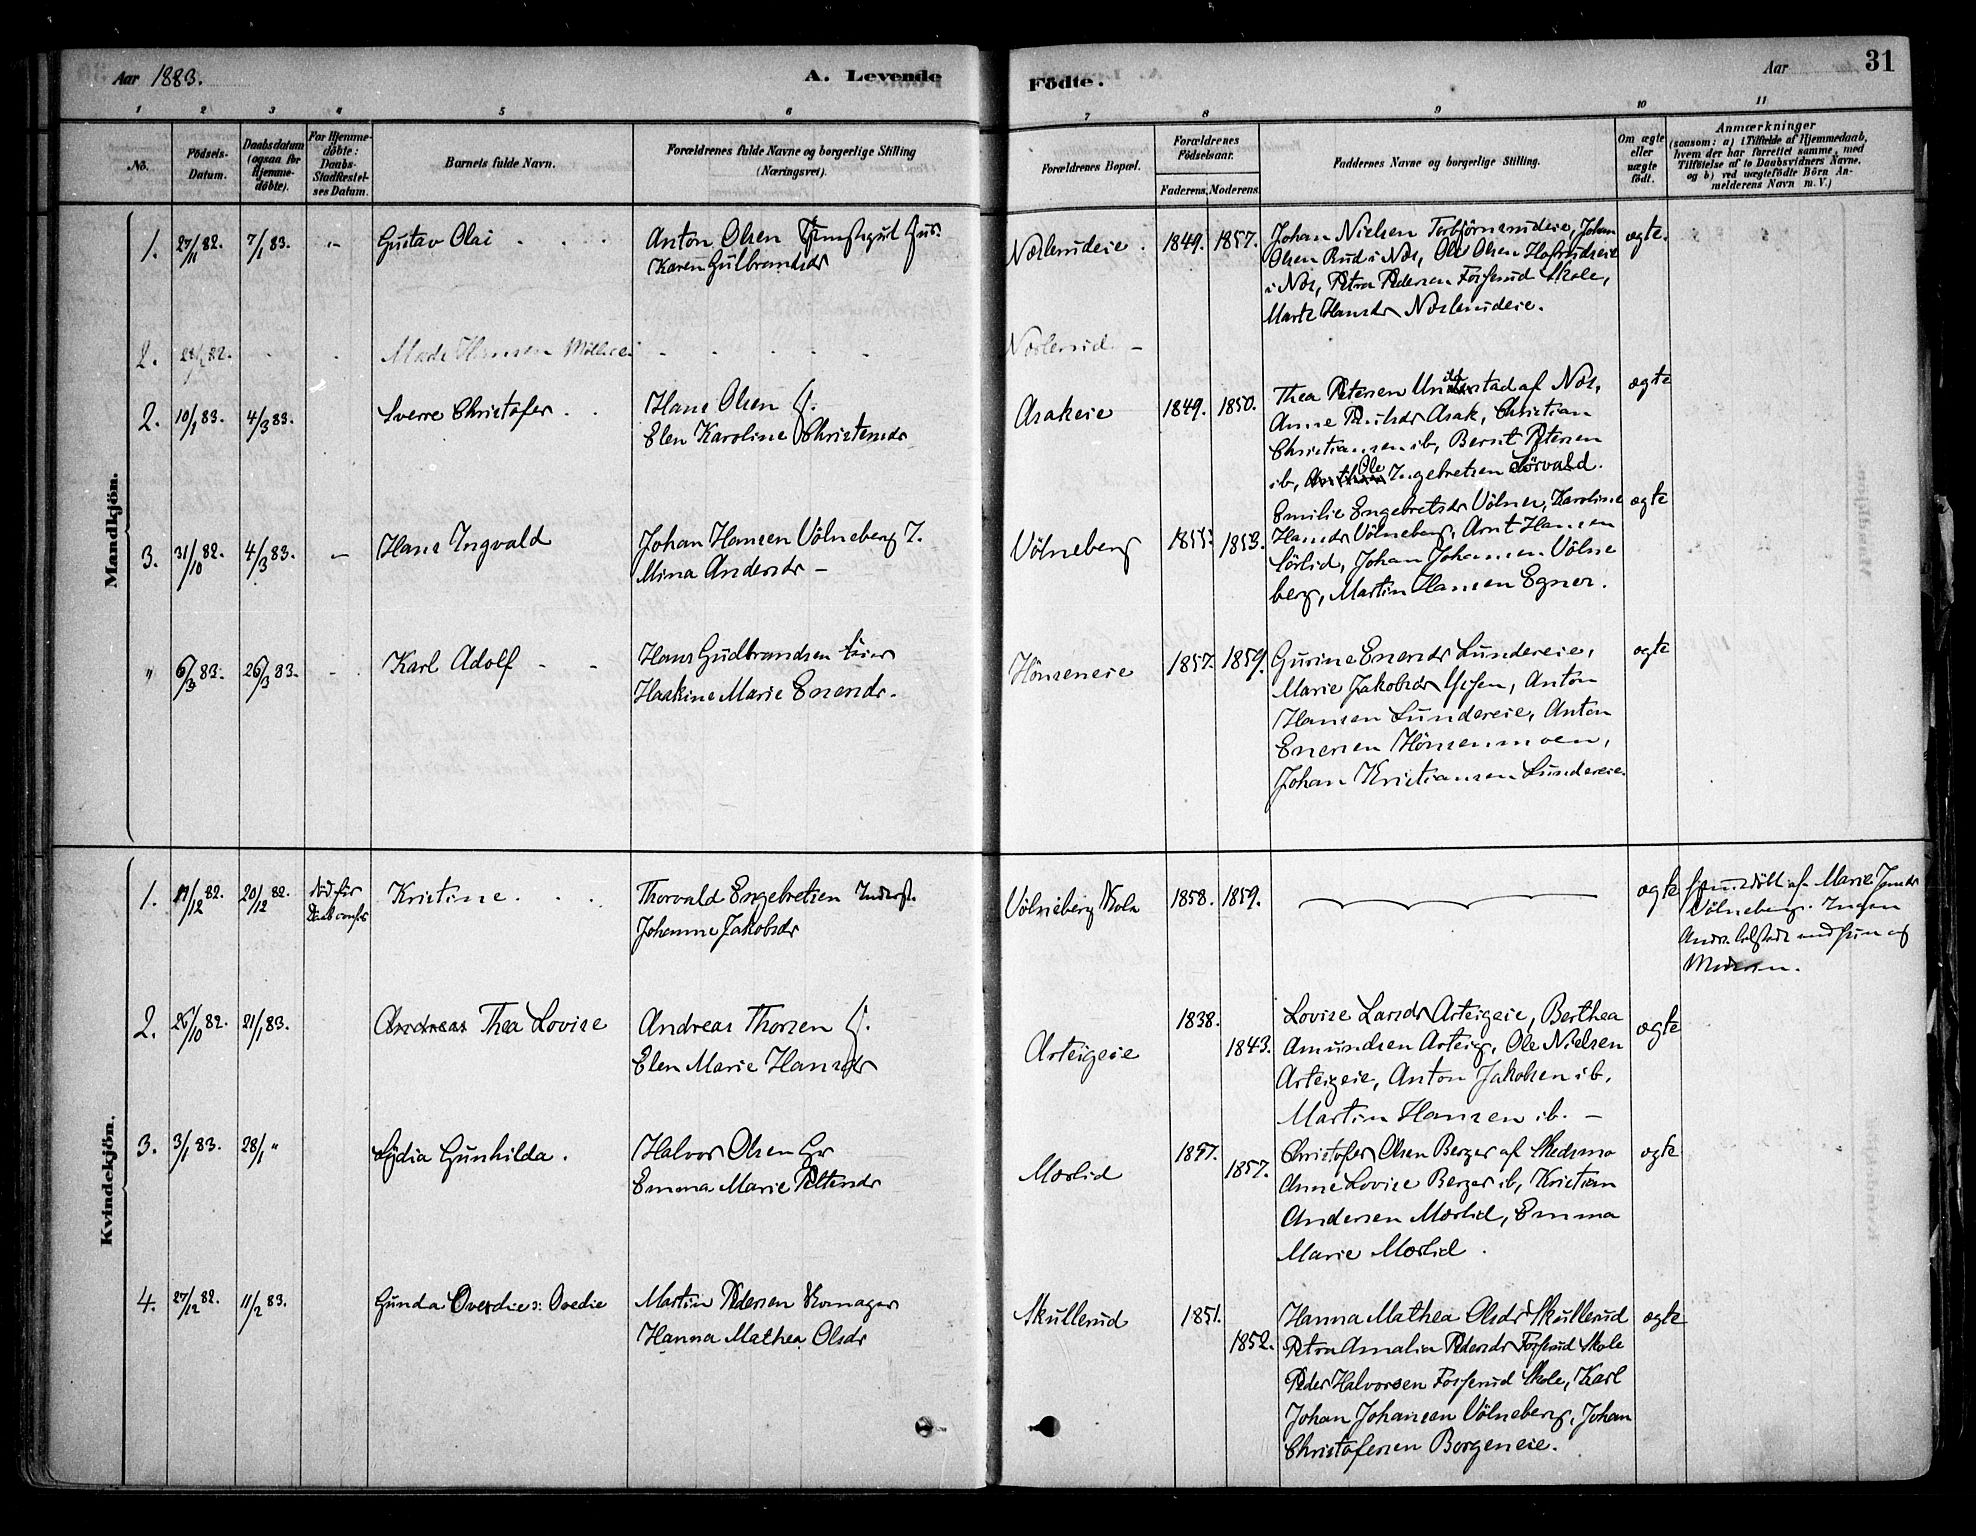 Aar 1883.
A. Levende
Födte.
Aar
31
1 2 3 4 5 6
7 8 9 10 11
No.
Födsels-Datum.
Daabsdatum (ogsaa for Hjemmedöbte).
For Hjemmedöbte: Daabs-Stadfæstelses Datum.
Barnets fulde Navn.
Forældrenes fulde Navne og borgerlige Stilling (Næringsvei).
Forældrenes Bopæl.
Forældrenes Födselsaar.
Faderens.
Moderens.
Faddernes Navne og borgerlige Stilling.
Om ægte eller uægte födt.
Anmærkninger
(saasom: a) i Tilfælde af Hjemmedaab, hvem der har forrettet samme, med Tilföielse af to Daabsvidners Navne, og b) ved uægtefödte Börn Anmelderens Navn m. V.)
Mandkjön.
1. 27/11 82. 7/1 83. Gustav Olai
Anton Olsen
Karen Gulbrandsdr
Næslerudeie. 1849. 1857.
Johan Nielsen Torbjörnsrudeie, Johan
Olsen Rud i Næs, Ole Olsen
i Næs, Petra Pedersen Fosserud Skole,
Marte Hansdr Næslerudeie.
ægte.
2. 82. Mads Hansen
Næslerud
2. 10/1 83. 4/3 83. Sverre Christofer
Hans Olsen
Elen Karoline Christensdr
Asakeie 1849. 1850.
Thea Petersen af Næs,
Anne Paulsdr Asak, Christian
Christiansen ib, Bernt Petersen
ib, Ole Ingebretsen Sörvald.
ægte
3. 31/10 82. 4/3 83. Hans Ingvald
Johan Hansen Völneberg
Mina Andersdr
Völneberg 1855. 1853.
Emilie Engebretsdr Völner, Karoline
Hansdr Völneberg, Arnt Hansen
Sörlid, Johan Johansen Völne
berg, Martin Hansen Egner.
ægte
" 6/3 83. 26/3 83. Karl Adolf
Hans Gudbrandsen
Haskine Marie Enersdr.
Hönseneie 1857. 1859.
Gurine Enersdr Lundereie,
Marie Jakobsdr, Anton
Hansen Lundereie, Anton
Enersen Hönsenmoen,
Johan Kristiansen Lundereie.
ægte
Kvindekjön.
1. 19/12 82. 20/12 82. död før
Kristine.
Thorvald Engebretsen Inderst.
Johanne Jakobsdr
Völneberg Skole 1858. 1859.
ægte
Hjemmedöbt af Marie
Völneberg. Ingen
Moderen.
2. 26/10 82. 21/1 83. Andreas Thea Lovise
Andreas Thorsen
Elen Marie Hansdr
Arteigeie 1838. 1843.
Lovise Larsdr Arteigeie, Berthea
Amundsen Arteig, Ole Nielsen
Arteigeie, Anton Jakobsen ib,
Martin Hansen ib. –
ægte
3. 3/1 83. 28/1 " Lydia Gunhilda.
Halvor Olsen Gr
Emma Marie Peltersdr
Mærlid 1857. 1857.
Christofer Olsen Berger af Skedsmo
Anne Lovise Berger ib, Kristian
Andersen Mærlid, Emma
Marie Mærlid.
ægte
4. 27/12 82. 11/2 83. Gunda Overdie: Ovedie
Martin Pedersen Skomager
Hanna Mathea Olsdr
Skullerud 1851. 1852.
Hanna Mathea Olsdr Skullerud
Petra Amalia Pedersdr Fosserud Skole
Peder Halvorsen Fosserud Skole, Karl
Johan Johansen Völneberg, Johan
Christofersen Borgeneie.
ægte